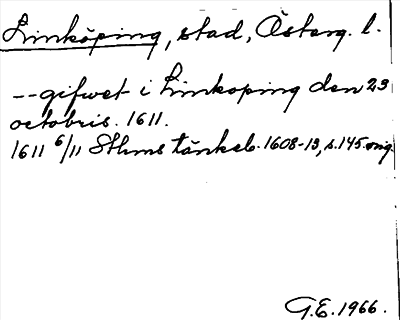 Linköping, stad, Österg. l.
--gifwet i Linkoping den 23
octobris. 1611.
1611 6/11 Sthms tänkeb. 1608-13, s. 145. orig.
G.E. 1966.